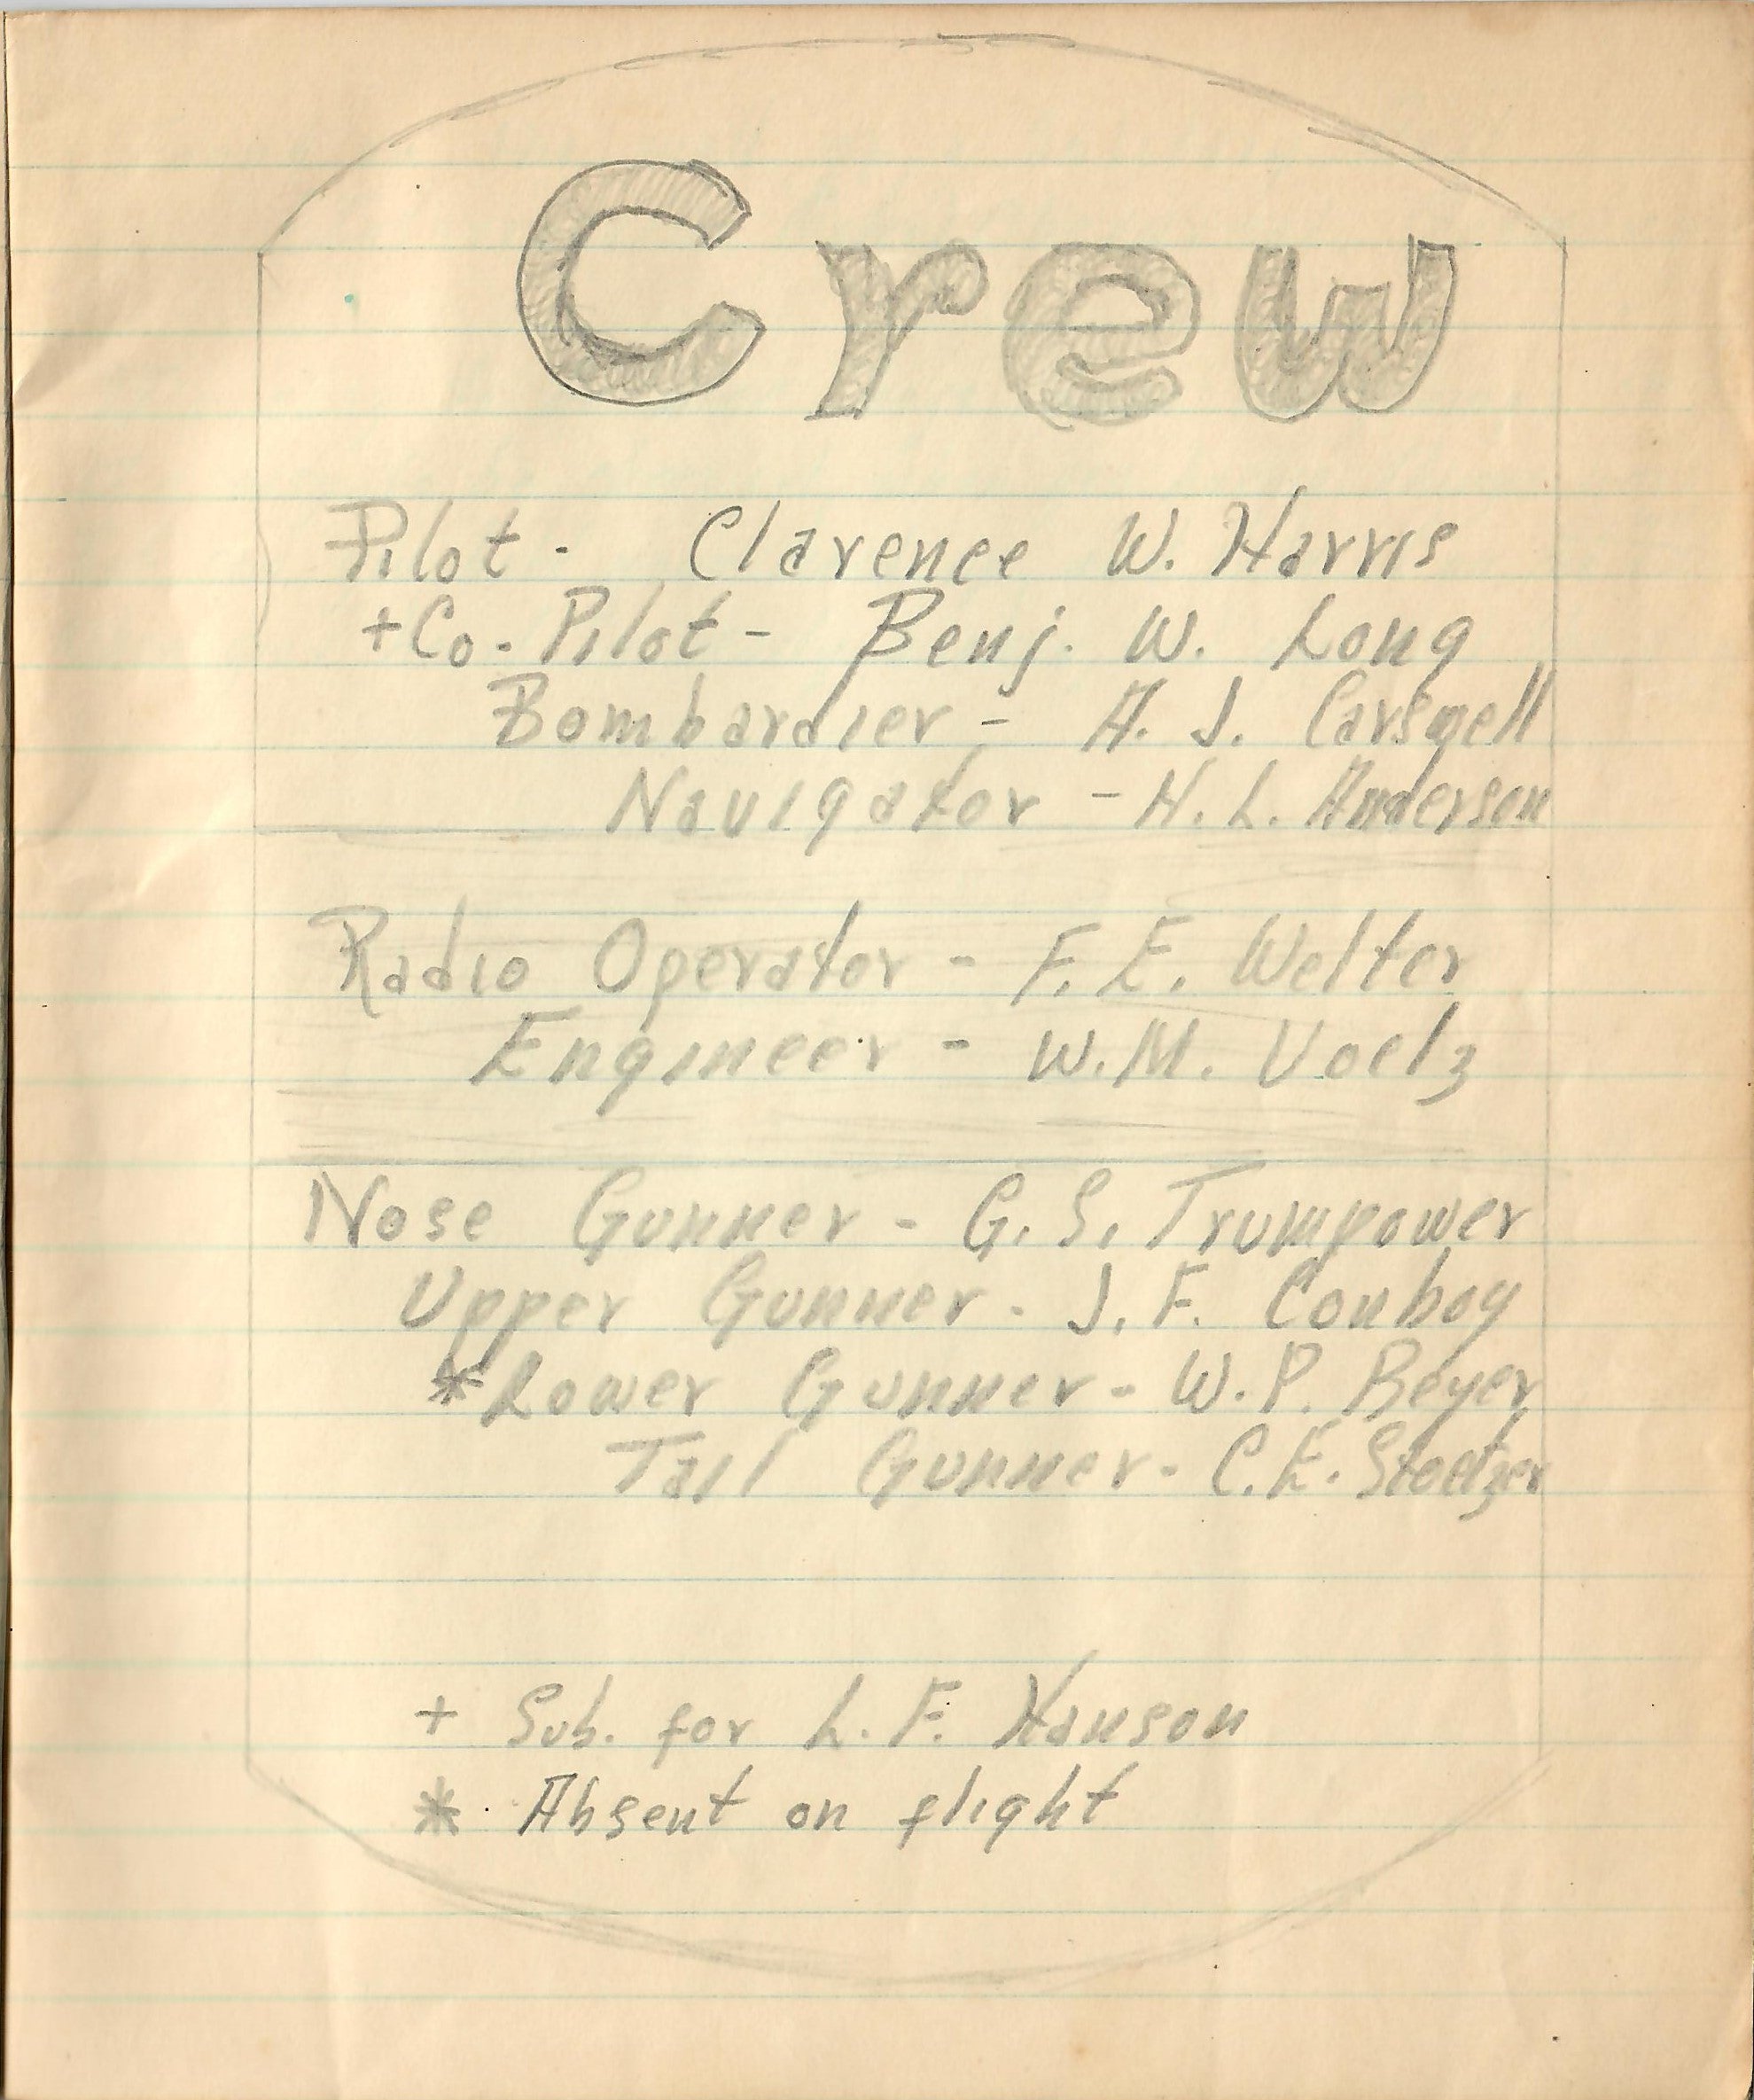 Crew
Pilot - Clarence W. Harris
+ Co-Pilot - Benj. W. Long
Bombardier - A. J. Carswell
Navigator - H. L. Anderson
Radio Operator - F. E. Welter
Engineer - W. M. Voelz
Nose Gunner - G. S. Trumpower
Upper Gunner - J. F. Conboy
* Lower Gunner - W. P. Beyer
Tail Gunner - C. E. Stoetzer
+ Sub. for L. F. Hanson
* Absent on flight